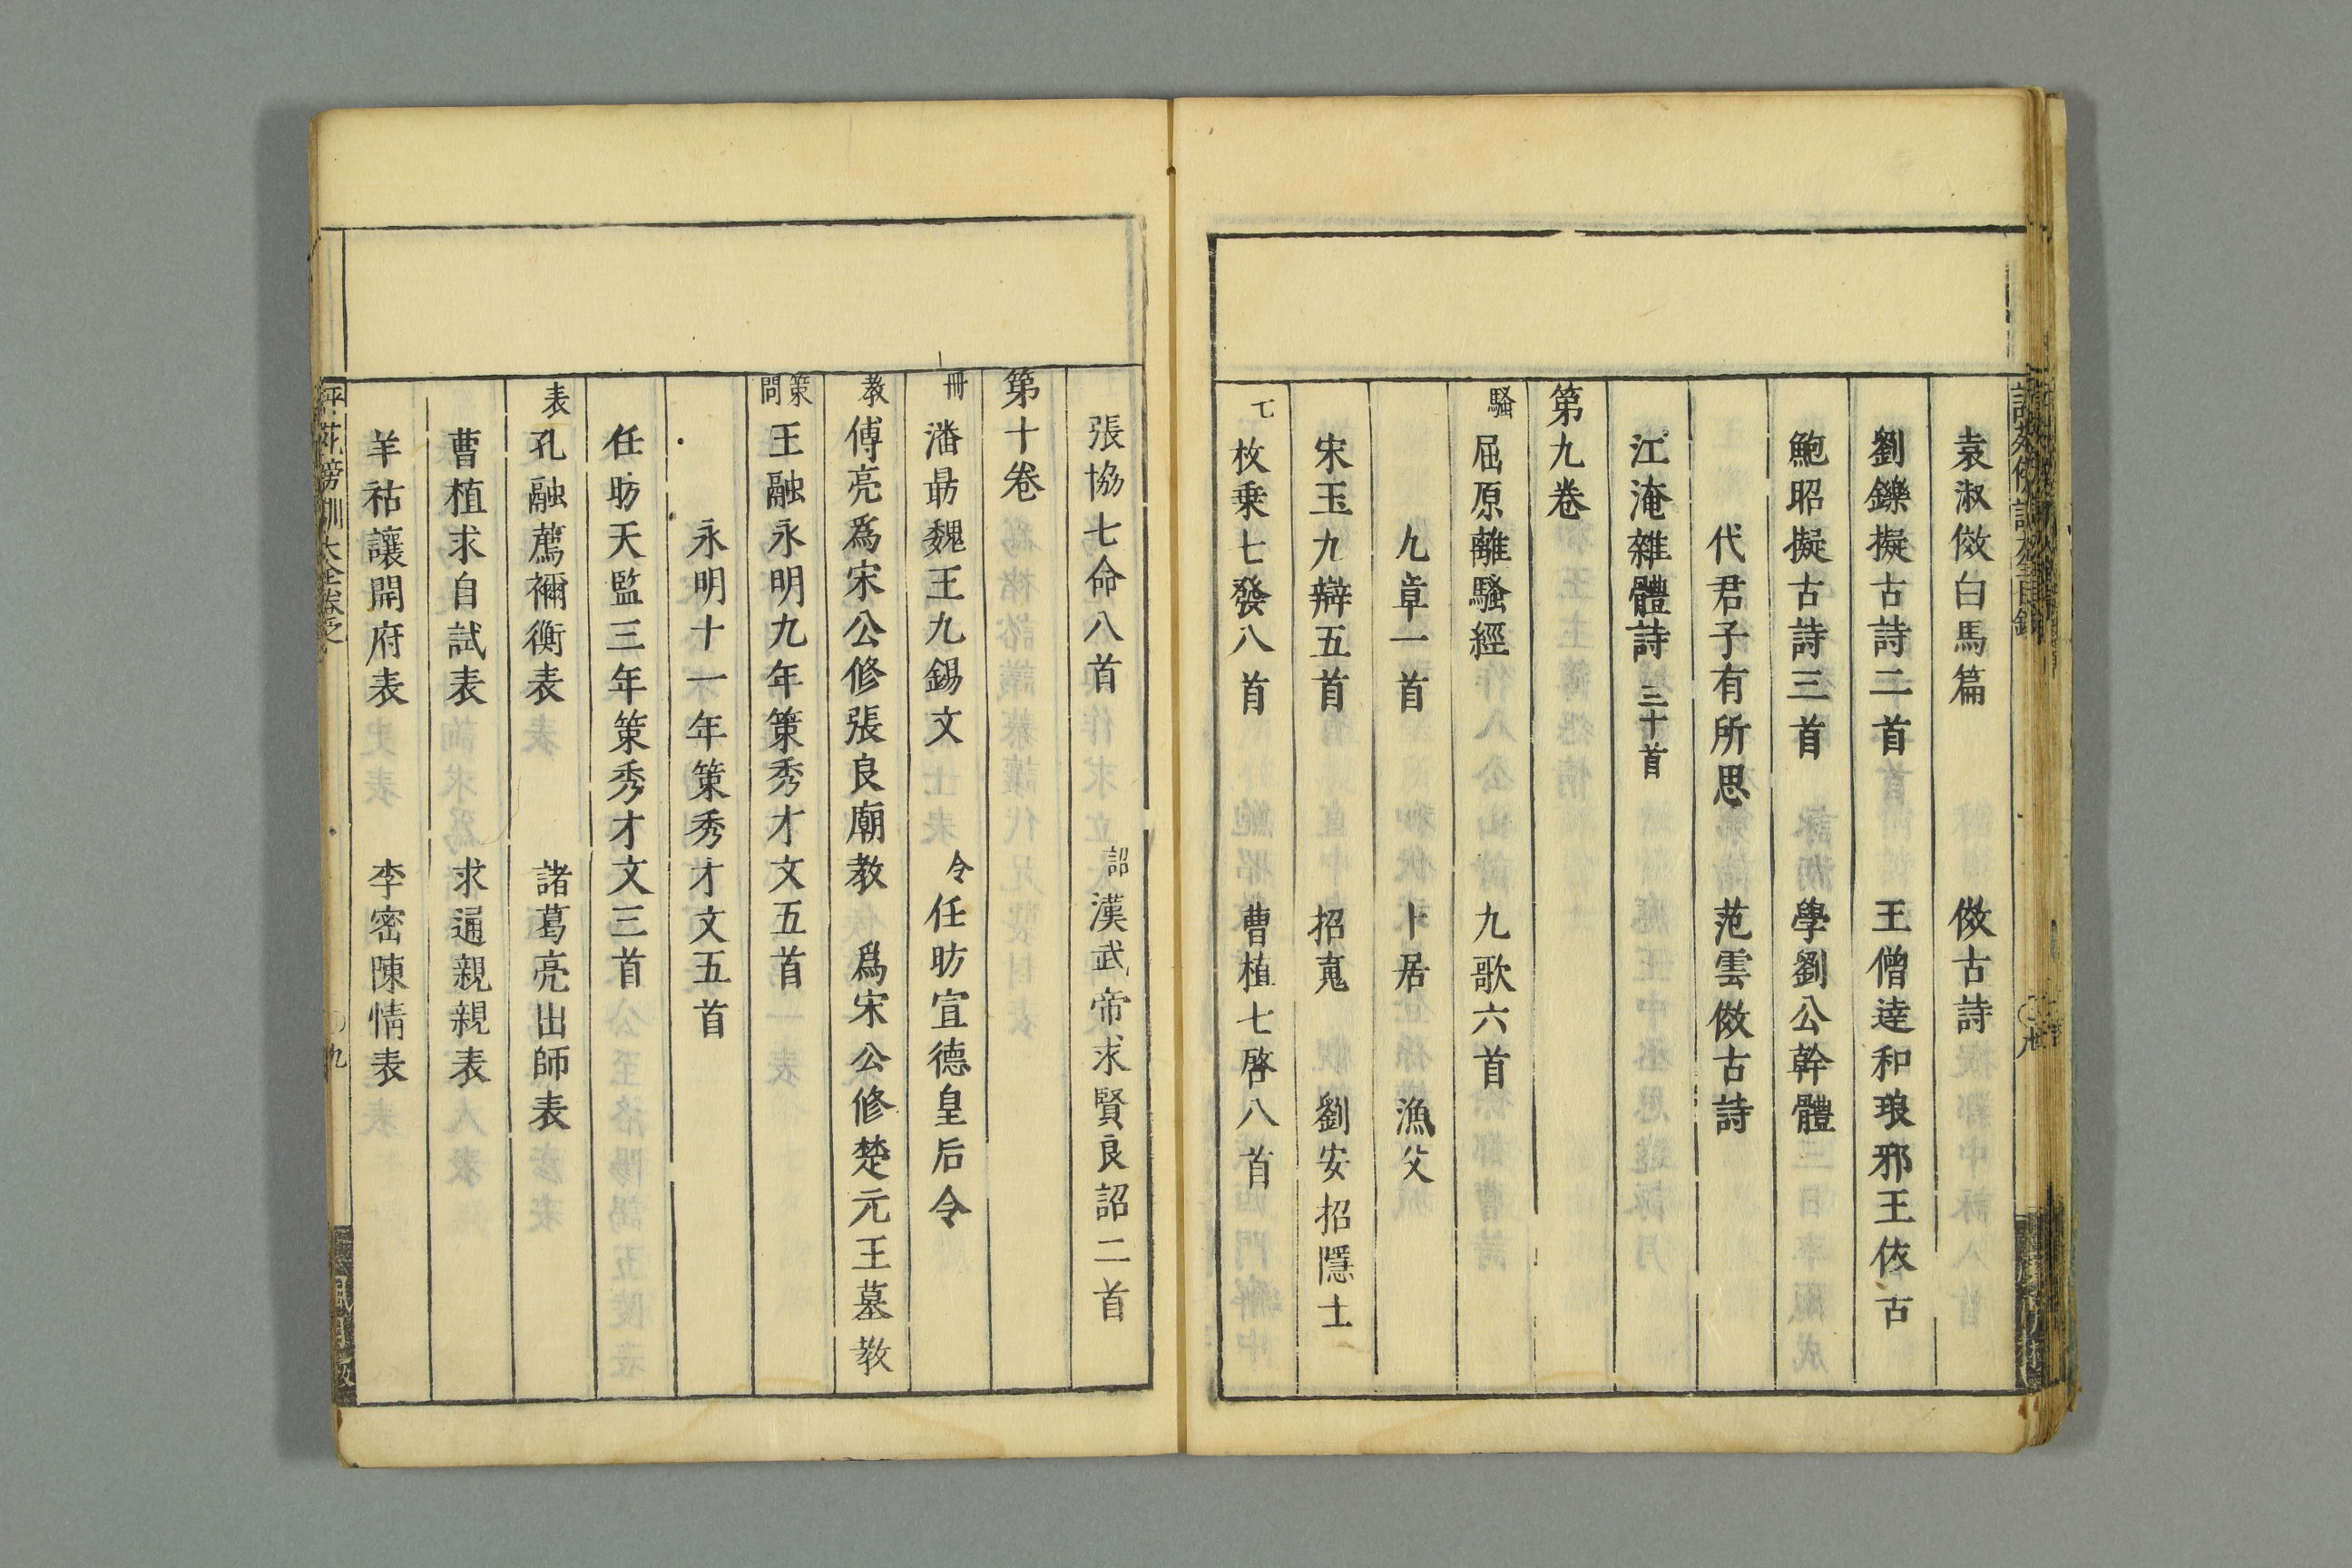 袁淑俲白馬篇 俲古詩
劉鑠擬古詩二首 王僧達和琅邪王依古
鮑昭擬古詩三首 學劉公幹體
代君子有所思 范雲俲古詩
江淹雜體詩 三十首
第九卷
騷 屈原離騷經 九歌六首
九章一首 卜居 漁父
宋玉九辯五首 招䰟 劉安招隱士
七 枚乗七發八首 曹植七啓八首
張協七命八首 詔 漢武帝求賢良詔二首
第十卷
冊 潘勗魏王九錫文 令 任昉宣德皇后令
教 傅亮爲宋公修張良廟教 爲宋公修楚元王墓教
策問 王融永明九年策秀才文五首
永明十一年策秀才文五首
任昉天監三年策秀才文三首
表 孔融薦禰衡表 諸葛亮出師表
曹植求自試表 求通親親表
羊祜讓開府表 李密陳情表
九